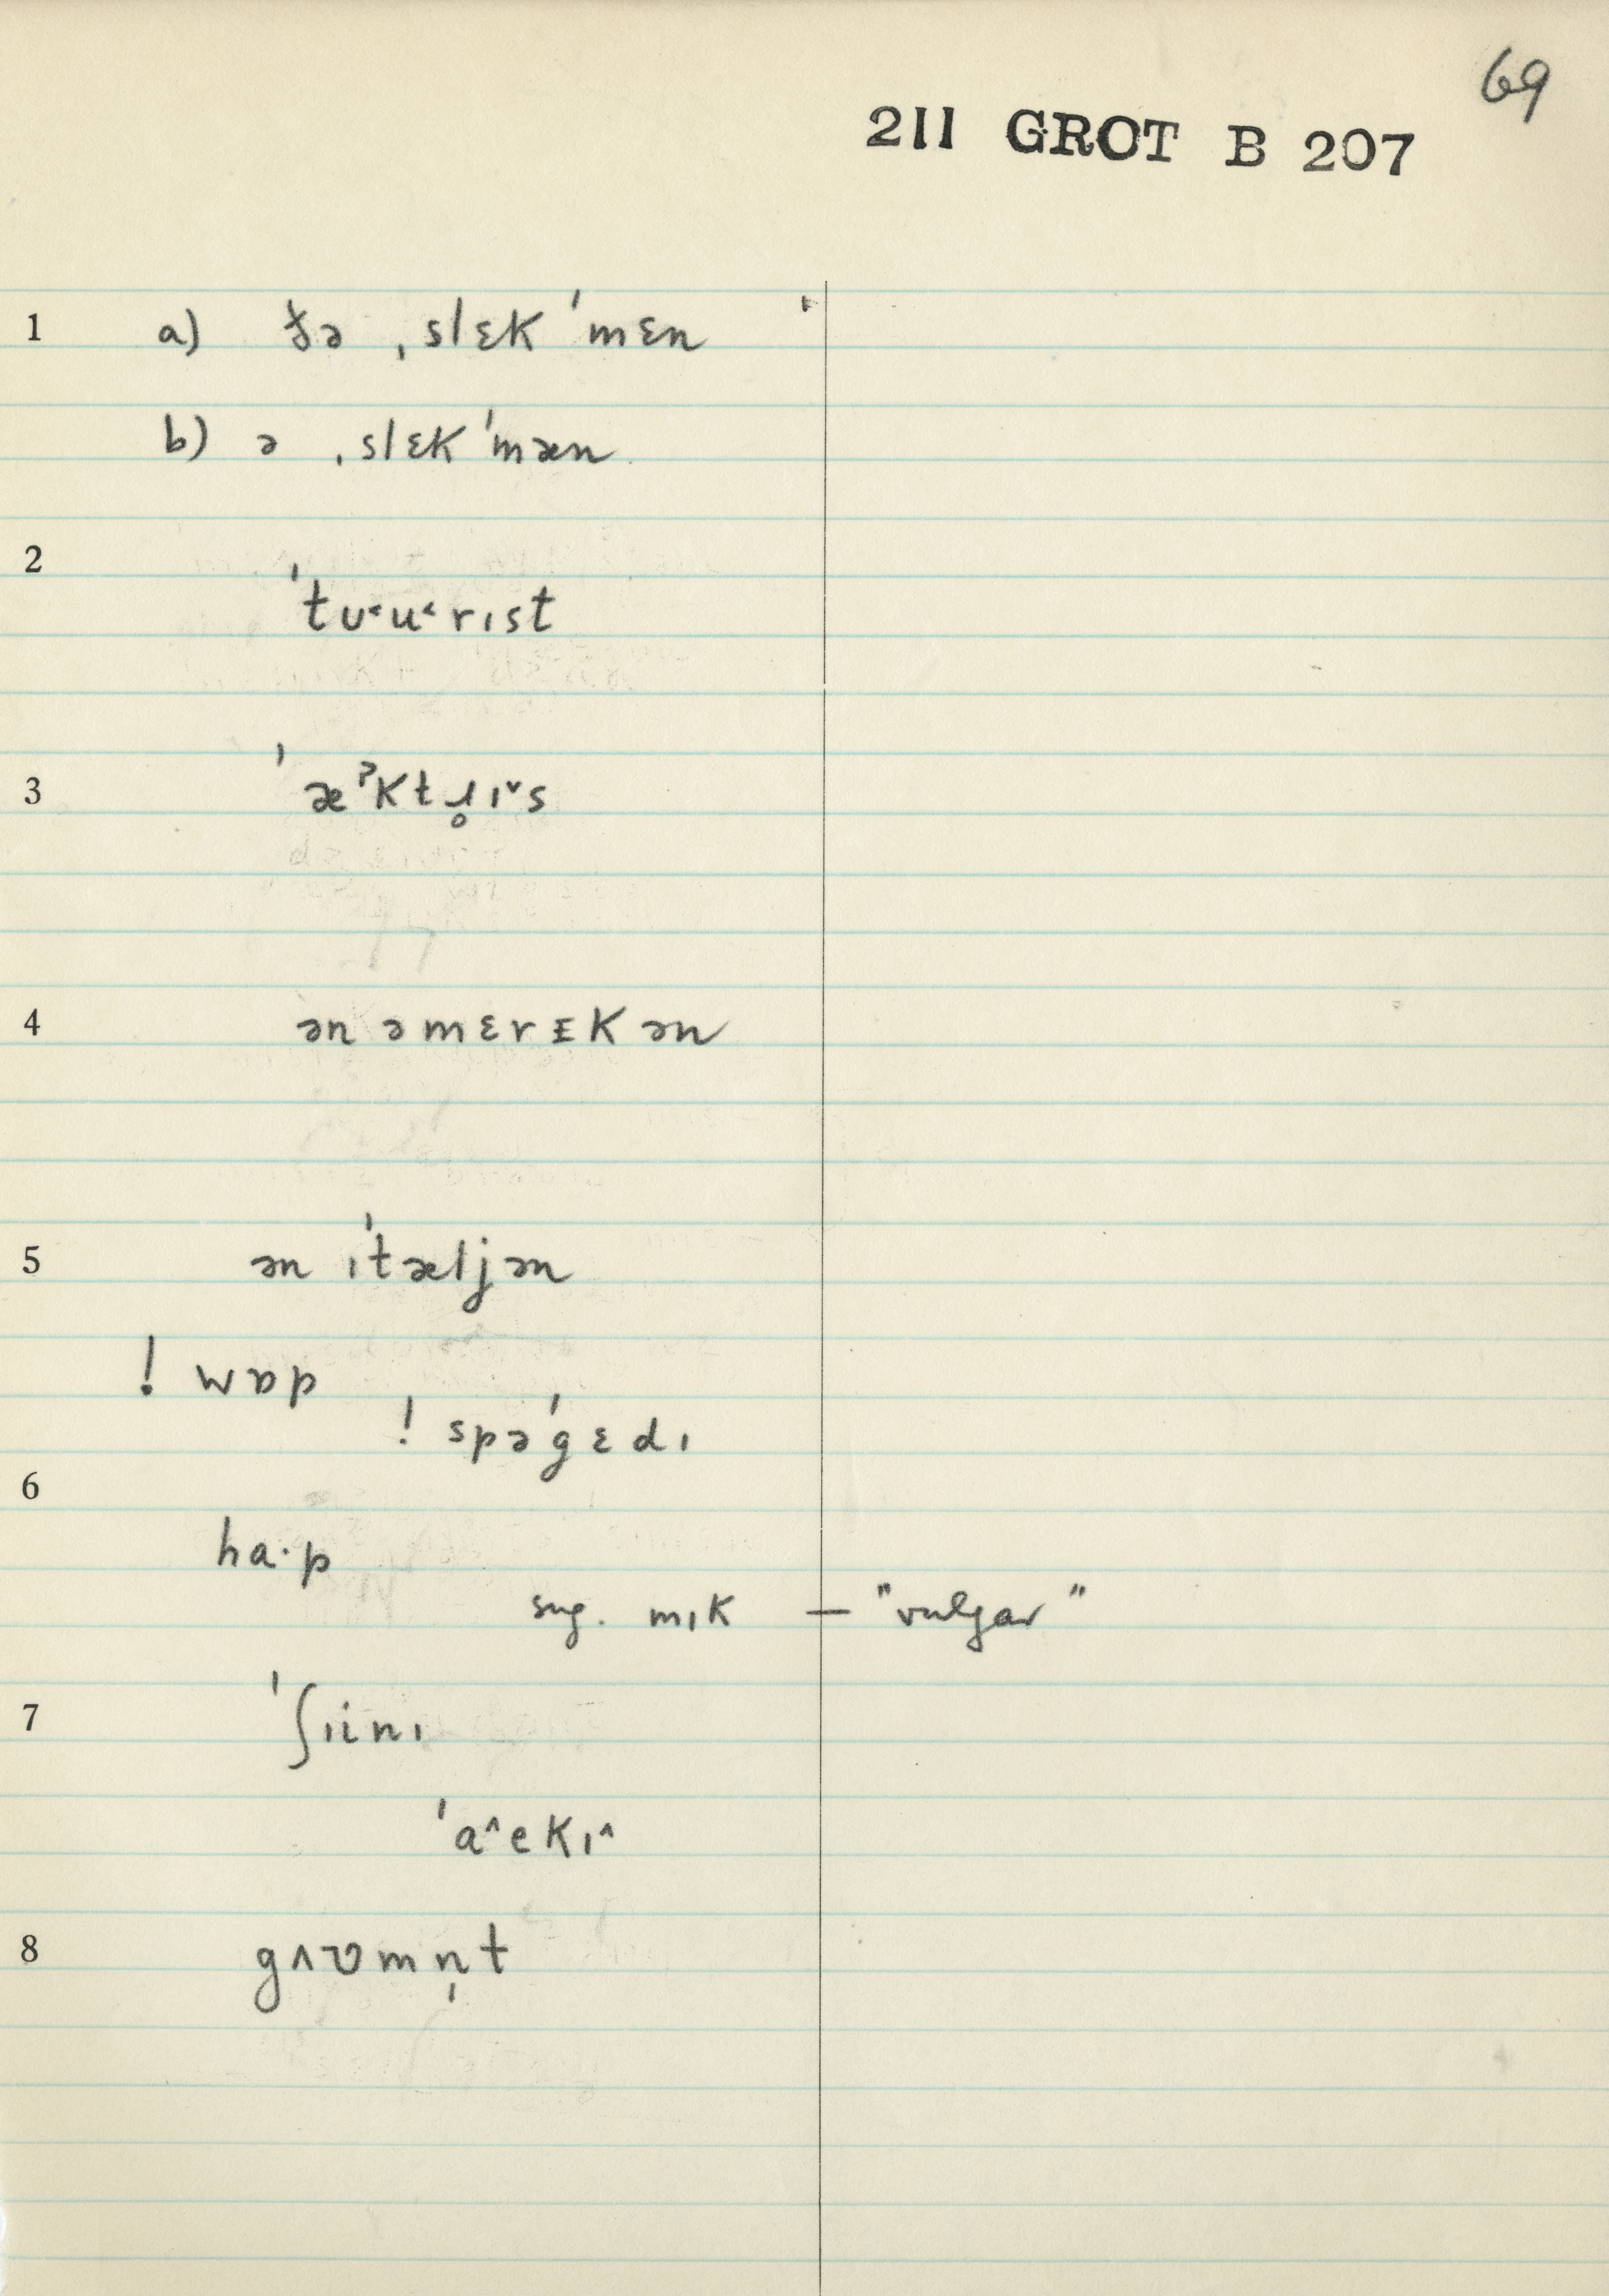 69
211 GROT B 207
1 a) ðə ˌslɛk ˈmɛn
b) ə ˌslɛk ˈmæn
2
ˈtʊ˂u˂rɪst
3 ˈæˀktɹ̥ɪ˅s
4 ən əmɛrᵻkən
5 ən ɪˈtæljən
! wɒp
! spəˈgɛdɪ
6
ha·p
sug. mɪk — "vulgar"
7 ˈʃɪinɪ
ˈa˄ekɪ˄
8 gʌʊmn̩t